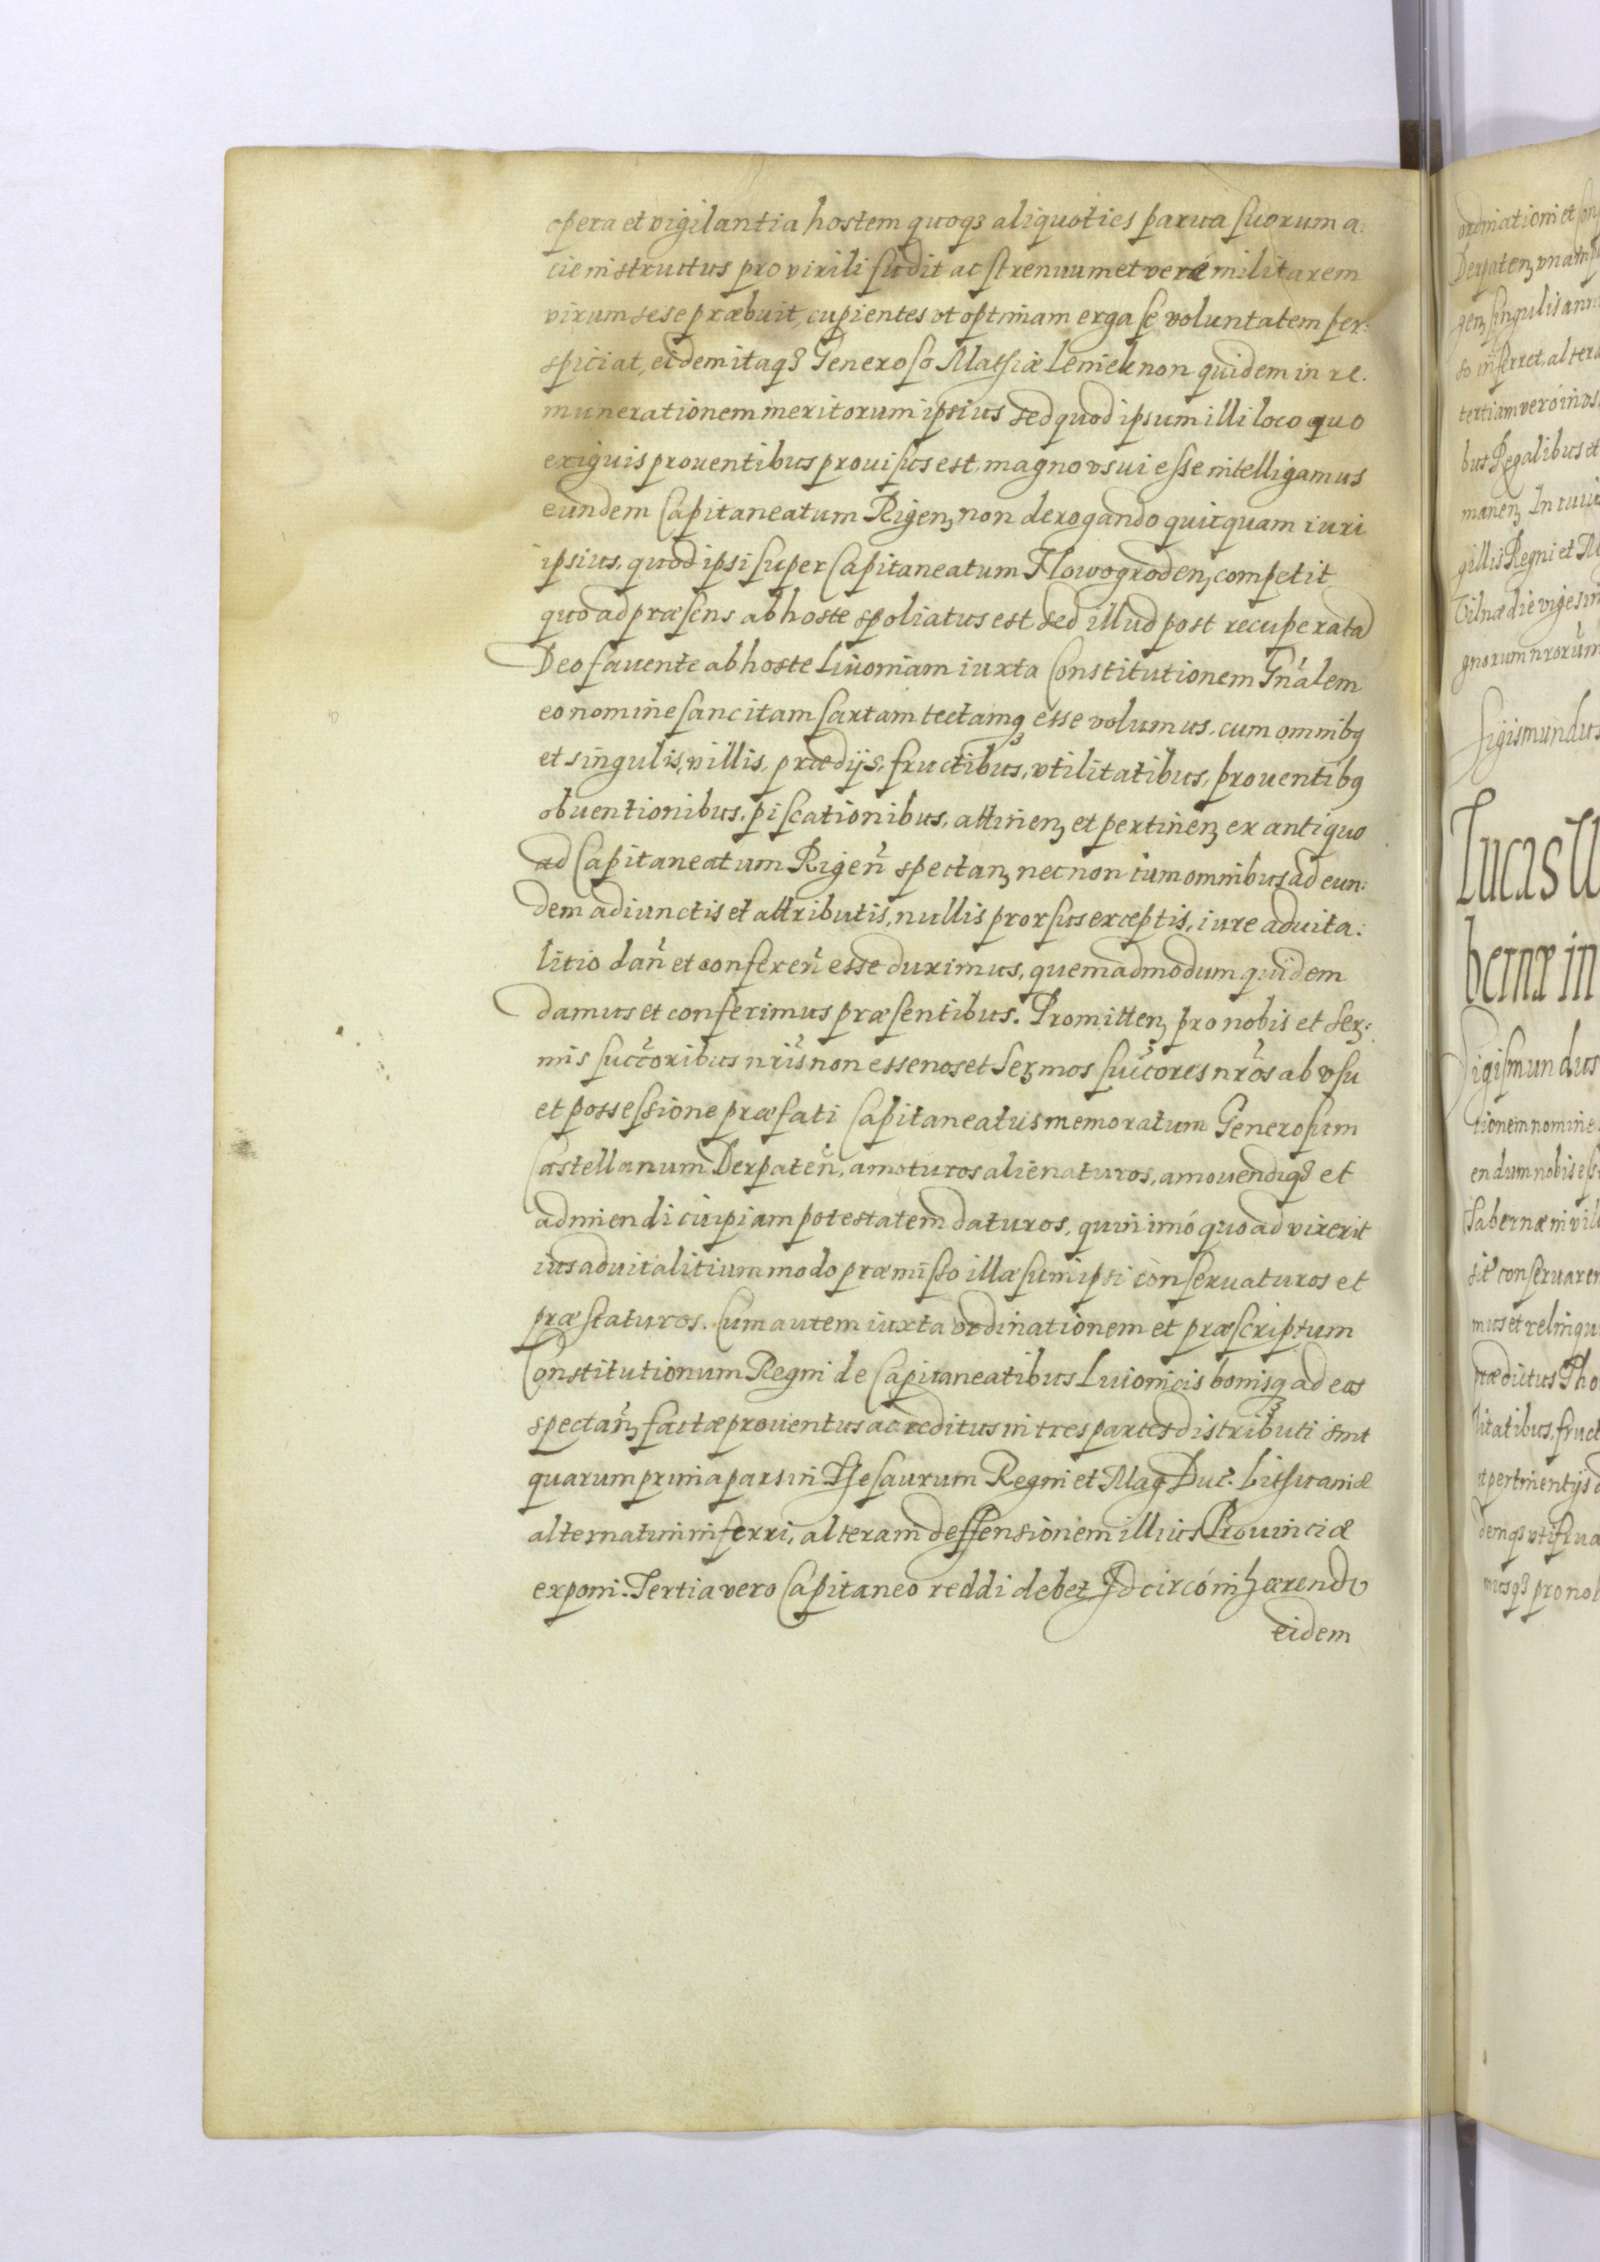 opera et vigilantia hostem quoqȝ aliquoties parua suorum a:
cie instructus pro virili fudit ac strenuum et veré militarem
virum sese præbuit, cupientes vt optimam erga se voluntatem per:
spiciat, eidem itaqȝ Generoso Mathiæ Leniek non quidem in re.
munerationem meritorum ipsius sed quod ipsum illi loco quo
exiguis prouentibus prouisus est, magno vsui esse intelligamus
eundem Capitaneatum Rigenȝ non derogando quicquam iuri
ipsius, quod ipsi super Capitaneatum Nowogrodenȝ competit
quo ad præsens ab hoste spoliatus est sed illud post recuperata
Deo fauente ab hoste Liuoniam iuxta Constitutionem Gnalem
eo nomine sancitam sartam tectamqȝ esse volumus, cum omnibȝ
et singulis, villis, prædijs, fructibus, vtilitatibus, prouentibȝ
obuentionibus, piscationibus, attinenȝ et pertinenȝ ex antiquo
ad Capitaneatum Rigen̄ spectanȝ necnon cum omnibus ad eun:
dem adiunctis et attributis, nullis prorsus exceptis, iure aduita:
litio dan̄ et conferen̄ esse duximus, quemadmodum quidem
damus et conferimus præsentibus. Promittenȝ pro nobis et Serȝ:
mis succoribus nris non esse nos et Serȝmos succores nros ab vsu
et possessione præfati Capitaneatus memoratum Generosum
Castellanum Derpaten̄, amoturos alienaturos, amouendiqȝ et
adimendi cuipiam potestatem daturos, quin imó quoad vixerit
ius aduitalitium modo præmisso illæsum ipsi conseruaturos et
præstaturos. Cum autem iuxta ordinationem et præscriptum
Constitutionum Regni de Capitaneatibus Liuonicis bonisqȝ ad eos
spectanȝ factæ prouentus ac reditus in tres partes distributi sint
quarum prima pars in Thesaurum Regni et Mag Duc. Lithuaniæ
alternatim inferri, altera in deffensionem illius Prouinciæ
exponi. Tertia vero Capitaneo reddi debet Idcircó inhærendo
eidem
ordinationi et
Derpatenȝ vnam
genȝ singulis
so inferret, altera
tertiam veró in vs
bus Regalibus et
manenȝ In cuius
gillis Regni et M
Vilnæ die vigesim
gnorum nrorum
Sigismundus
Lucas
bernæ in
Sigismundus
tionem nomine
endum nobis
Tabernæ in vil
sit conseruarem
mus et relinqu
prædictus Tho
litatibus, fruct
et pertinentijs
demqȝ vti frua
musqȝ pro nob